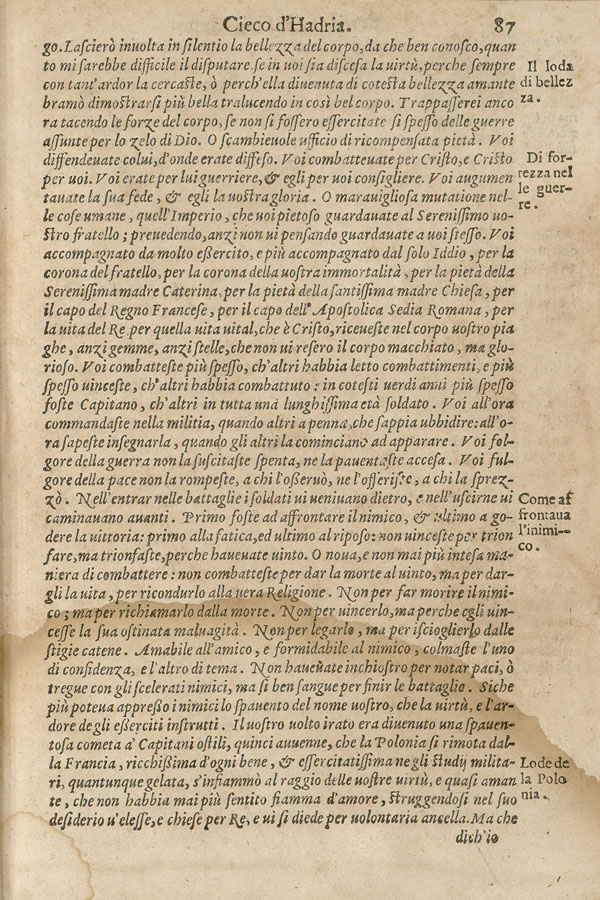 Cieco d'Hadria. 87
go. Lascierò inuolta in silentio la bellezza del corpo, da che ben conosco, quan
to mi sarebbe difficile il disputare, se in uoi sia discesa la uirtù, perche sempre
con tant'ardor la cercaste, ò perch'ella diuenuta di cotesta bellezza amante
bramò dimostrarsi più bella tralucendo in così bel corpo. Trappasserei anco
ra tacendo le forze del corpo, se non si fossero essercitate sì spesso delle guerre
assunte per lo zelo di Dio. O scambieuole ufficio di ricompensata pietà. Voi
diffendeuate colui, d'onde erate diffeso. Voi combatteuate per Cristo, e Cristo
per uoi. Voi erate per lui guerriere, & egli per uoi consigliere. Voi augumen
tauate la sua fede, & egli la uostra gloria. O marauigliosa mutatione nel-
le cose umane, quell'Imperio, che uoi pietoso guardauate al Serenissimo uo-
stro fratello; preuedendo, anzi non ui pensando guardauate a uoi stesso. Voi
accompagnato da molto essercito, e più accompagnato dal solo Iddio, per la
corona del fratello, per la corona della uostra immortalità, per la pietà della
Serenissima madre Caterina, per la pietà della santissima madre Chiesa, per
il capo del Regno Francese, per il capo dell'Apostolica Sedia Romana, per
la uita del Re, per quella uita uital, che è Cristo, riceueste nel corpo uostro pia
ghe, anzi gemme, anzi stelle, che non ui resero il corpo macchiato, ma glo-
rioso. Voi combatteste più spesso, ch'altri habbia letto combattimenti, e più
spesso uinceste, ch'altri habbia combattuto: in cotesti uerdi anni più spesso
foste Capitano, ch'altri in tutta una lunghissima età soldato. Voi all'ora
commandaste nella militia, quando altri a pena, che sappia ubbidire: all'o-
ra sapeste insegnarla, quando gli altri la cominciano ad apparare. Voi fol-
gore della guerra non la suscitaste spenta, ne la pauentaste accesa. Voi ful-
gore della pace non la rompeste, a chi l'osseruò, ne l'offeriste, a chi la sprez-
zò. Nell'entrar nelle battaglie i soldati ui ueniuano dietro, e nell'uscirne ui
caminauano auanti. Primo foste ad affrontare il nimico, & ultimo a go-
dere la uittoria: primo alla fatica, ed ultimo al riposo: non uinceste per trion
fare, ma trionfaste, perche haueuate uinto. O noua, e non mai più intesa ma-
niera di combattere: non combatteste per dar la morte al uinto, ma per dar-
gli la uita, per ricondurlo alla uera Religione. Non per far morire il nimi-
co; ma per richiamarlo dalla morte. Non per uincerlo, ma perche egli uin-
cesse la sua ostinata maluagità. Non per legarlo, ma per iscioglierlo dalle
stigie catene. Amabile all'amico, e formidabile al nimico, colmaste l'uno
di confidenza, e l'altro di tema. Non haueuate inchiostro per notar paci, ò
tregue con gli scelerati nimici, ma sì ben sangue per finir le battaglie. Siche
più poteua appresso i nimici lo spauento del nome uostro, che la uirtù, e l'ar-
dore de gli esserciti instrutti. Il uostro uolto irato era diuenuto una spauen-
tosa cometa à Capitani ostili, quinci auuenne, che la Polonia sì rimota dal-
la Francia, ricchissima d'ogni bene, & essercitatissima ne gli studÿ milita-
ri, quantunque gelata, s'infiammò al raggio delle uostre uirtù, e quasi aman
te, che non habbia mai più sentito fiamma d'amore, struggendosi nel suo
desiderio u'elesse, e chiese per Re, e ui si diede per uolontaria ancella. Ma che
dich'io
Il loda
di bellez
za.
Di for-
tezza nel
le guer-
re.
Come af
frontaua
l'inimi-
co.
Lode de
la Polo
nia.